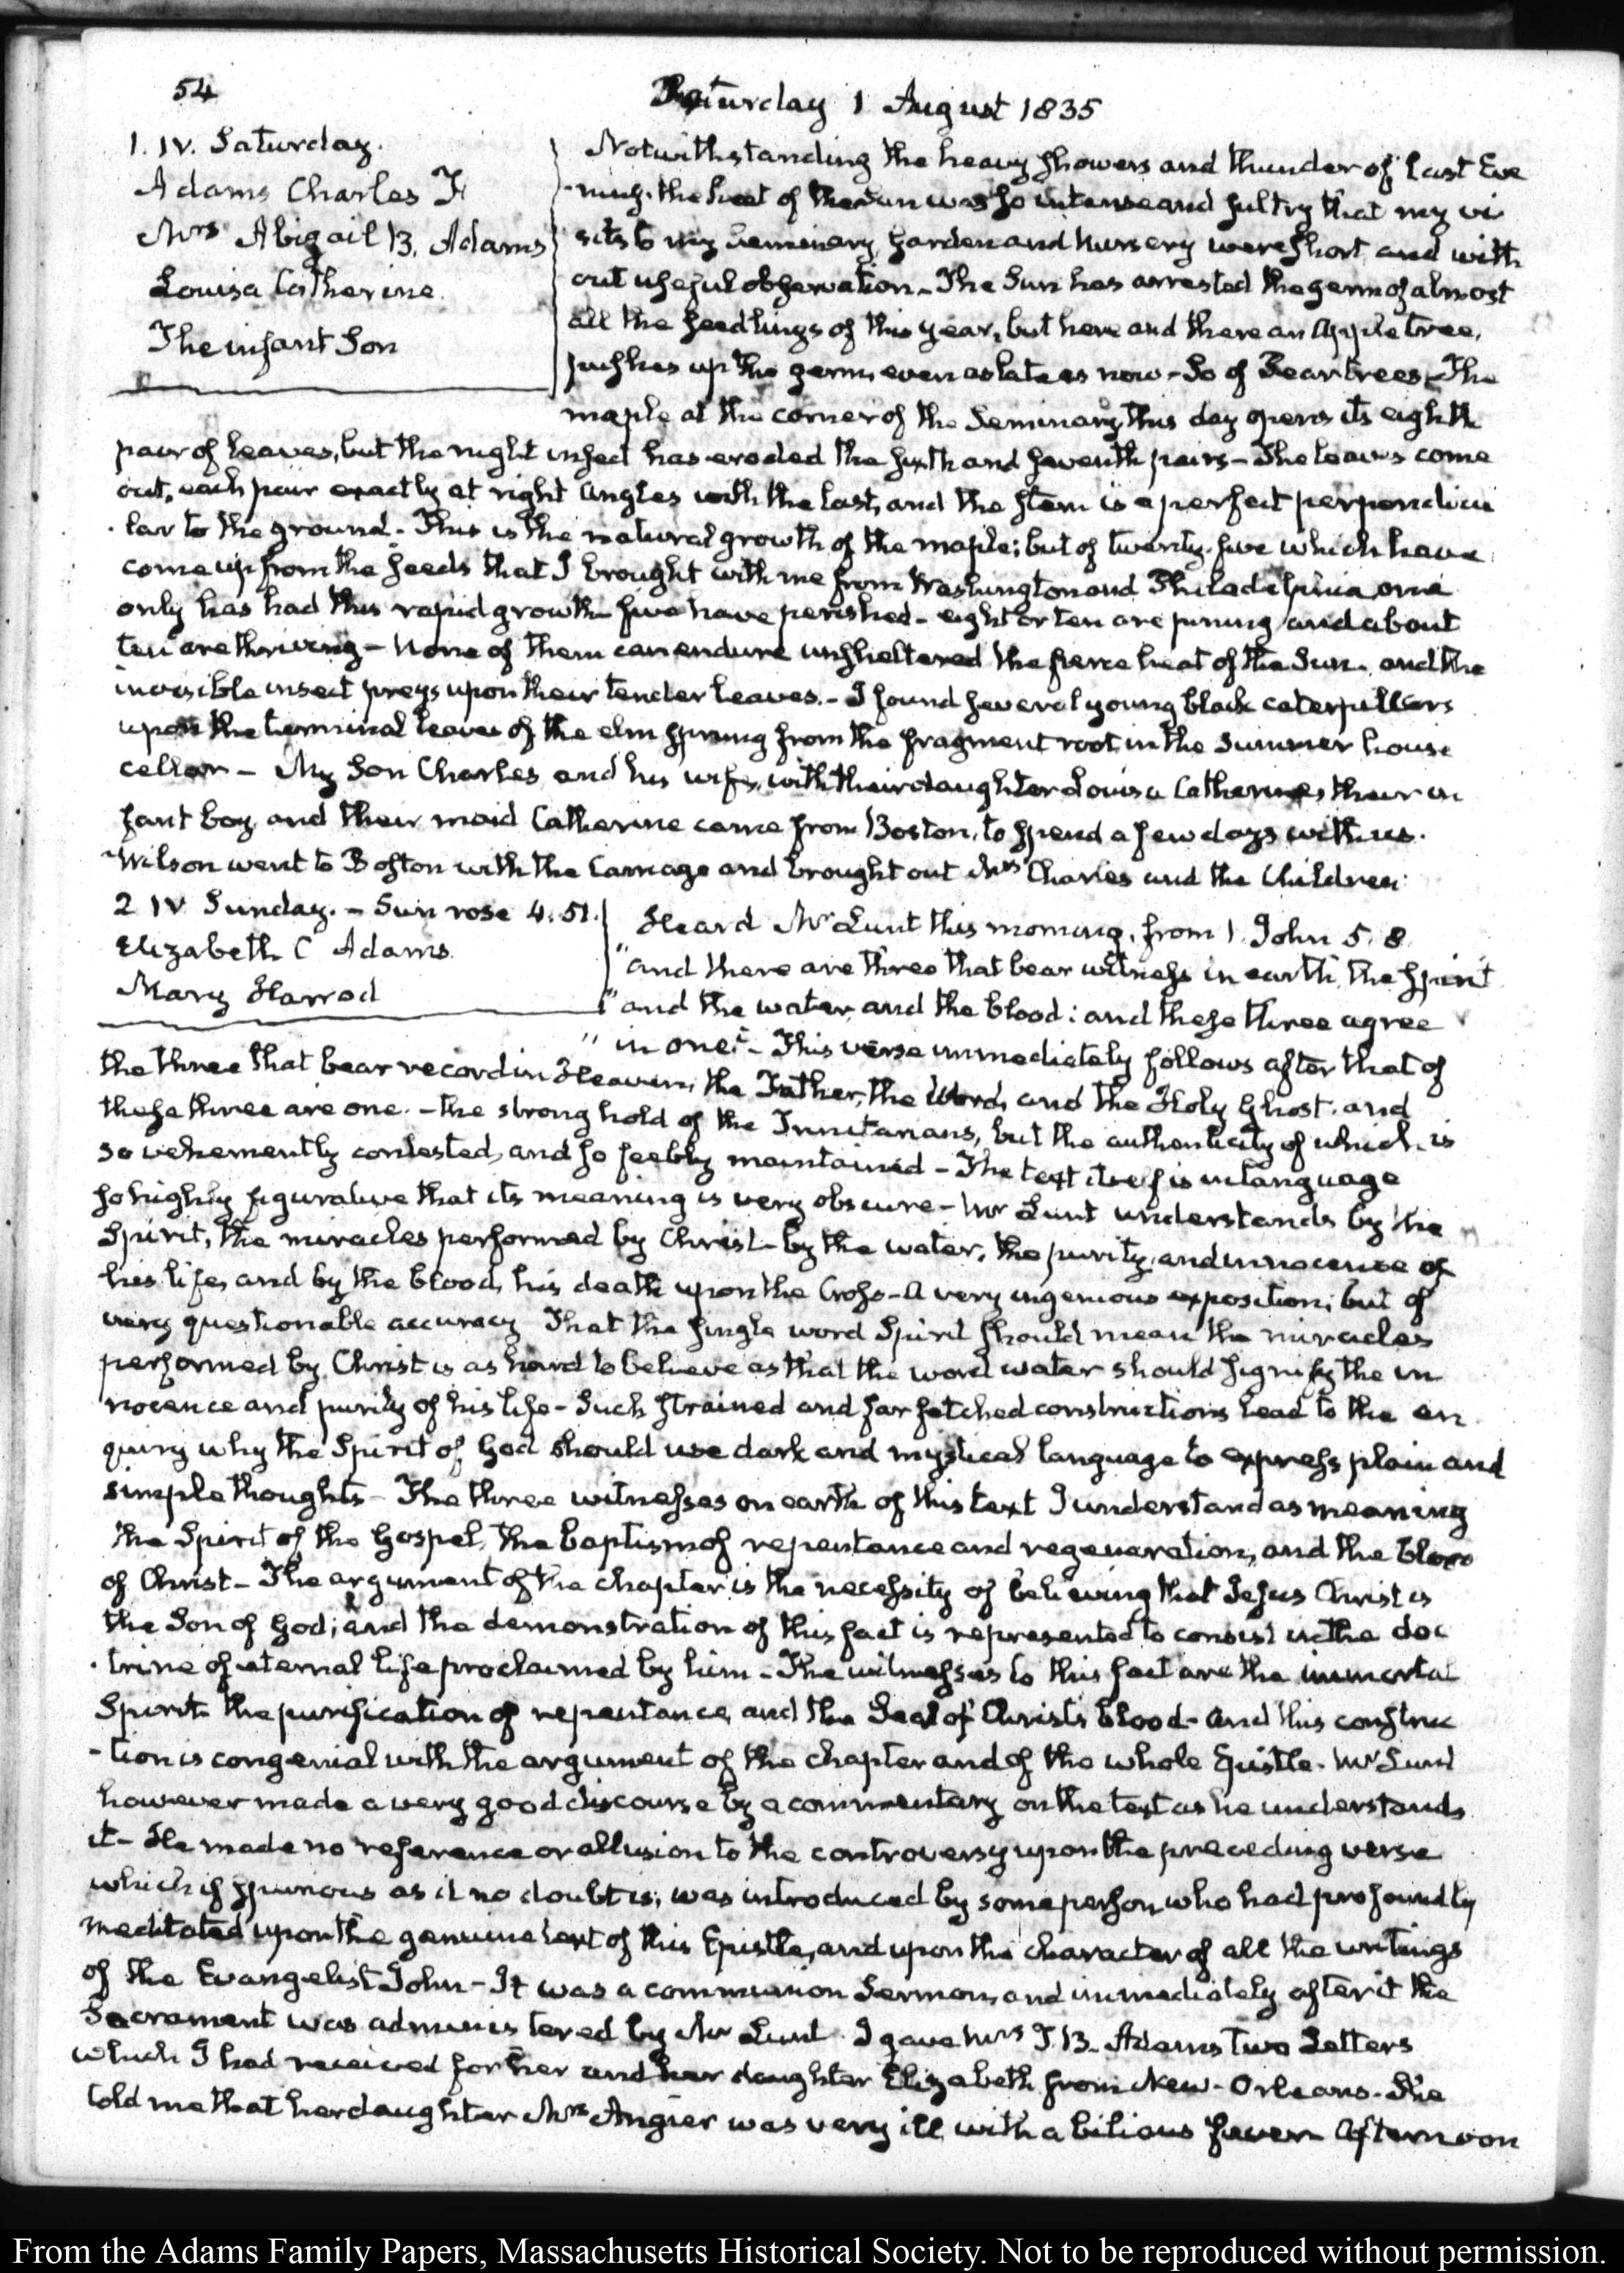 54
Saturday 1 August 1835
1. IV. Saturday.
Adams Charles F
Mrs Abigail B. Adams
Louisa Catherine
The infant Son
Notwithstanding the heavy showers and thunder of last Eve
-ning. the heat of the Sun was so intense and sultry that my vi
sits to my Seminary, garden and Nursery were short and with
out useful observation_ The Sun has arrested the germ of almost
all the seedlings of this year, but here and there an apple tree,
pushes up the germ even as late as now - So of Pear trees - The
maple at the corner of the Seminary, this day opens its eighth
pair of leaves, but the night insect has eroded the sixth and seventh pairs - The leaves come
out, each pair exactly at right angles with the last, and the stem is a perfect perpendicu
-lar to the ground - This is the natural growth of the maple; but of twenty-five which have
come up from the seeds that I brought with me from Washington and Philadelphia, one
only has had this rapid growth - five have perished - eight or ten are pining and about
ten are thriving - None of them can endure unsheltered the fierce heat of the Sun, and the
invisible insect preys upon their tender leaves. - I found several young black caterpillars
upon the terminal leaves of the elm sprung from the fragment root in the Summer house
cellar - My Son Charles and his wife, with their daughter Louisa Catherine, their in
fant boy, and their maid Catherine came from Boston, to spend a few days with us.
Wilson went to Boston with the Carriage and brought out Mrs Charles and the Children
2 IV Sunday. - Sun rose 4.51.
Elizabeth C Adams
Mary Harrod
Heard Mr Lunt this morning, from 1. John 5. 8.
"and there are three that bear witness in earth, the spirit
"and the water, and the blood: and these three agree
"in one" - This verse immediately follows after that of
the three that bear record in Heaven, the Father, the Word, and the Holy Ghost, and
these three are one. - the strong hold of the Trinitarians, but the authenticity of which is
so vehemently contested, and so feebly maintained - The text itself is in language
so highly figurative that its meaning is very obscure - Mr Lunt understands by the
Spirit, the miracles performed by Christ - by the water, the purity and innocence of
his life, and by the blood, his death upon the Cross - A very ingenious exposition; but of
very questionable accuracy That the single word Spirit should mean the miracles
performed by Christ is as hard to believe as that the word water should signify the in
nocence and purity of his life - Such strained and far fetched constructions lead to the en
quiry why the Spirit of God should use dark and mystical language to express plain and
simple thoughts - The three witnesses on earth of this text I understand as meaning
the Spirit of the Gospel, the baptism of repentance and regeneration, and the blood
of Christ - The argument of the chapter is the necessity of believing that Jesus Christ is
the Son of God; and the demonstration of this fact is represented to consist in the doc
-trine of eternal life proclaimed by him - The witnesses to this fact are the immortal
Spirit - the purification of repentance, and the Seal of Christ's blood - And this construc
-tion is congenial with the argument of the chapter and of the whole Epistle. Mr Lunt
however made a very good discourse by a commentary on the text as he understands
it - He made no reference or allusion to the controversy upon the preceding verse
which if spurious as it no doubt is, was introduced by some person, who had profoundly
meditated upon the genuine text of this Epistle, and upon the character of all the writings
of the Evangelist John - It was a communion Sermon, and immediately after it the
Sacrament was administered by Mr Lunt. I gave Mrs T. B. Adams two Letters
which I had received for her and her daughter Elizabeth from New-Orleans. She
told me that her daughter Mrs Angier was very ill with a bilious fever Afternoon
From the Adams Family Papers, Massachusetts Historical Society. Not to be reproduced without permission.